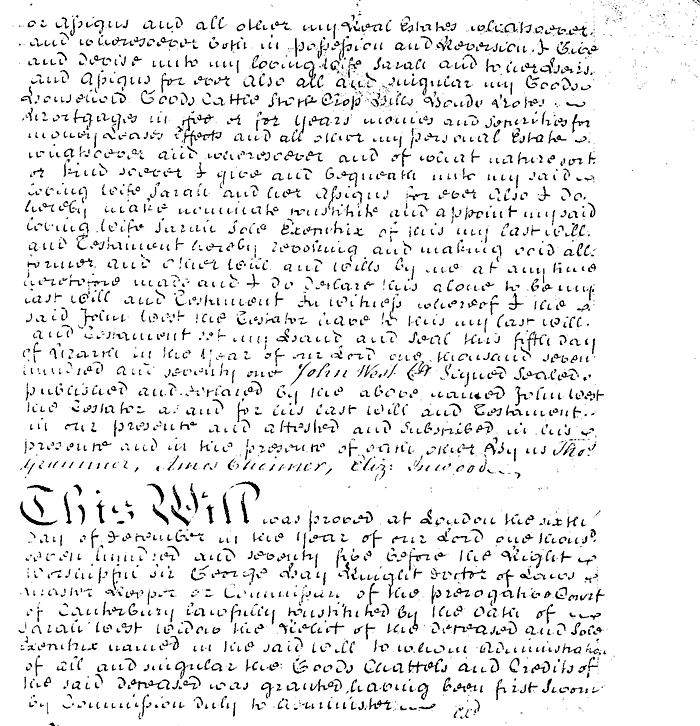 or Assigns and all other my Real Estates whatsoever
and wheresoever both in possession and Reversion I Give
and Devise unto my loving Wife Sarah and to her Heirs
and Assigns for ever Also all and singular my Goods
Household Goods Cattle Stock Crop Bills Bonds Notes
Mortgages in fee or for years monies and Securities for
money Leases Effects and all other my personal Estate
whatsoever and wheresoever and of what nature sort
or kind soever I give and bequeath unto my said
loving Wife Sarah and her Assigns for ever Also I do
hereby make nominate constitute and appoint my said
loving Wife Sarah Sole Executrix of this my last Will
and Testament hereby revoking and making void all
former and other Will and Wills by me at any time
heretofore made and I do declare this alone to be my
last Will and Testament In Witness whereof I the
said John West the Testator have to this my last Will
and Testament set my Hand and Seal this fifth day
of March in the Year of our Lord one thousand seven
hundred and seventy one John West Signed Sealed
published and declared by the above named John West
the Testator as and for his last Will and Testament
in our presence and attested and Subscribed in his
presence and in the presence of each other By us Thos
Grammer, Amos Skinner, Eliz: Inwood
This Will was proved at London the sixth
day of December in the Year of our Lord one thousd
seven hundred and seventy five before the Right
Worshipful Sir George Hay Knight Doctor of Laws
Master Keeper or Commissary of the prerogative Court
of Canterbury lawfully constituted by the Oath of
Sarah West Widow the Relict of the deceased and Sole
Executrix named in the said Will to whom Administration
of all and singular the Goods Chattels and Credits of
the said deceased was granted having been first Sworn
by Commission duly to Administer